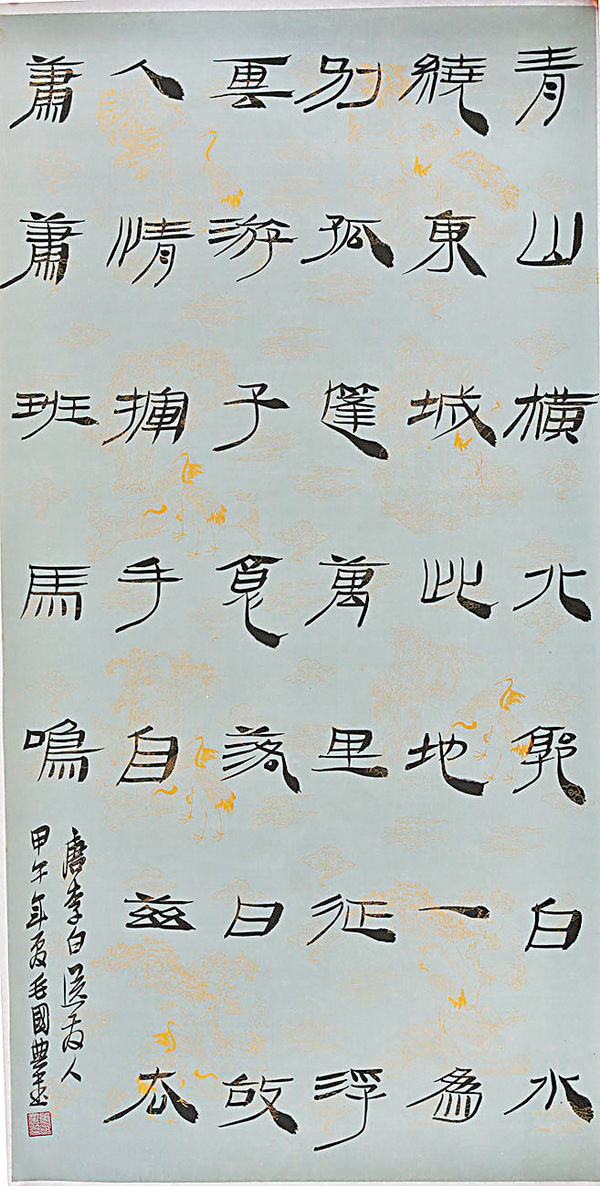 青山橫北郭白水
繞東城此地一為
別孤篷萬里征浮
雲游子意落日故
人情揮手自茲去
蕭蕭班馬鳴
唐李白送友人
甲午年夏毛國典書